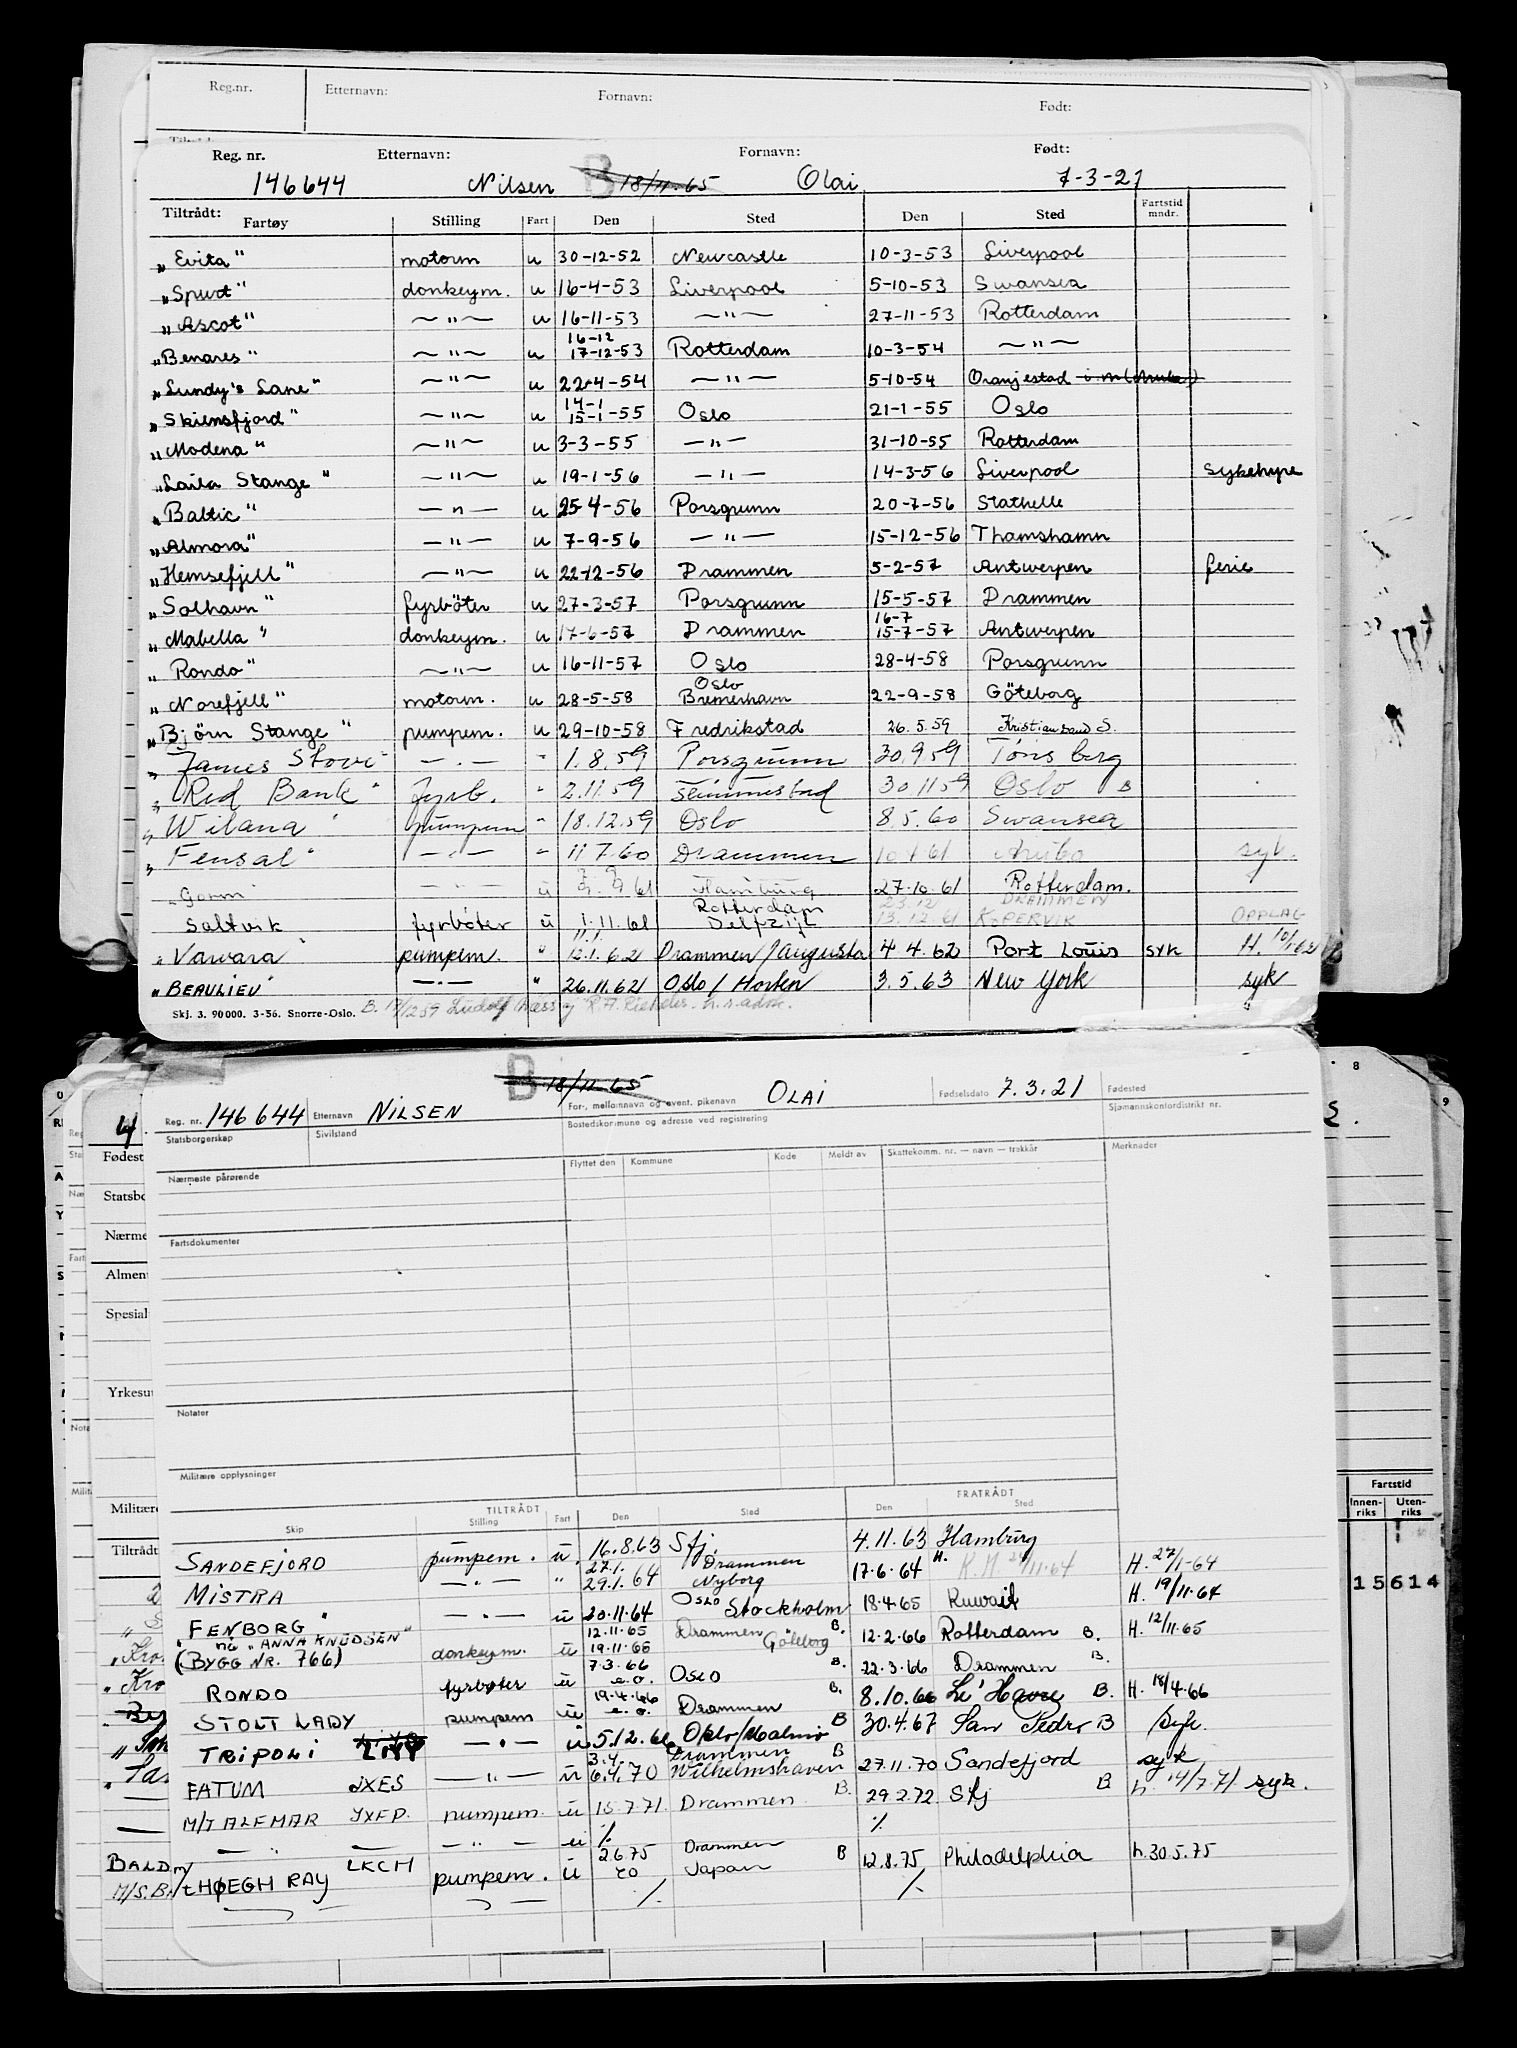 Reg.nr. Etternavn: Fornavn: Født:
Reg. nr. Etternavn: Fornavn: Født:
146644 Nilsen B 18/11-65 Olai 7-3-21
Tiltrådt:
Fartøy Stilling Fart Den Sted Den Sted Fartstid mndr.
„Evita" motorm u 30-12-52 Newcastle 10-3-53 Liverpool
„Spurt" donkeym. u 16-4-53 Liverpool 5-10-53 Swansea
„Ascot" —"— u 16-11-53 —"— 27-11-53 Rotterdam
16-12
„Benares" —"— u 17-12-53 Rotterdam 10-3-54 —"—
„Lundy's Lane" —"— u 22-4-54 —"— 5-10-54 Oranjestad
14-1
„Skiensfjord" —"— u 15-1-55 Oslo 21-1-55 Oslo
„Modena" —"— u 3-3-55 —"— 31-10-55 Rotterdam
„Laila Stange" —"— u 19-1-56 —"— 14-3-56 Liverpool
„Baltic" —"— u 25-4-56 Porsgrunn 20-7-56 Stathelle
„Almora" —"— u 7-9-56 —"— 15-12-56 Thamshamn
„Hemsefjell" —"— u 22-12-56 Drammen 5-2-57 Antwerpen ferie
„Solhavn" fyrböter u 27-3-57 Porsgrunn 15-5-57 Drammen
16-7
„Mabella" donkeym. u 17-6-57 Drammen 15-7-57 Antwerpen
„Rondo" —"— u 16-11-57 Oslo 28-4-58 Porsgrunn
Oslo
„Norefjell" motorm. u 28-5-58 Bremerhavn 22-9-58 Göteborg
„Björn Stange" pumpem. u 29-10-58 Fredrikstad 26.5.59 Kristiansand S.
„James Stove" —"— " 1.8.59 Porsgrunn 30.9.59 Tönsberg
„Red Bank" fyrb. " 2.11.59 Slemmestad 30.11.59 Oslo B
„Wilana" pumpem " 18.12.59 Oslo 8.5.60 Swansea
„Fensal" —"— " 11.7.60 Drammen 10.1.61 Aruba syk.
„Gorm —"— u 9.61 Hamburg 27.10.61 Rotterdam.
Rotterdam 23.12 DRAMMEN
Saltvik fyrböter u 1.11.61 Delfzijl 13.12.61 KOPERVIK OPPLAG
„Varvara" pumpem. " 12.1.62 Drammen/Augusta 4.4.62 Port Louis syk H. 10/1 62
„BEAULIEU" —"— " 26.11.62 Oslo/Horten 3.5.63 New York syk
Skj. 3. 90000. 3-56. Snorre-Oslo.
B 18/11-65
Reg. nr. 146644 Etternavn NILSEN For-, mellomnavn og event. pikenavn OLAI Fødselsdato 7.3.21 Fødested
Statsborgerskap Sivilstand Bostedskommune og adresse ved registrering Sjømannskontordistrikt nr.
Nærmeste pårørende Flyttet den Kommune Kode Meldt av Skattekomm. nr. — navn — trekkår Merknader
Fartsdokumenter
Notater
Militære opplysninger
TILTRÅDT FRATRÅDT
Skip Stilling Fart Den Sted Den Sted
SANDEFJORD pumpem. u. 16.8.63 Sfj. 4.11.63 Hamburg
27.1. Drammen
MISTRA —"— " 29.1.64 Nyborg 17.6.64 H. 27/1-64
FENBORG" —"— u 20.11.64 Oslo Stockholm 18.4.65 Kuwait H. 19/11.64
ng „ANNA KNUDSEN" 12.11.65 Drammen B.
(BYGG NR. 766) donkeym. u 19.11.65 Göteborg 12.2.66 Rotterdam B. H. 12/11.65
7.3.66
RONDO fyrbøter u e.o. Oslo B. 22.3.66 Drammen B.
19.4.66
STOLT LADY pumpem u e.o. Drammen B. 8.10.66 Le Havre B. H. 18/4.66
TRIPOLI —"— u 5.12.66 Oslo/Malmø B 30.4.67 San Pedro B syk.
3.4. Drammen B
FATUM JXES —"— u 6.4.70 Wilhelmshaven 27.11.70 Sandefjord syk
M/T ALEMAR JXFP. pumpem. u 15.7.71 Drammen B. 29.2.72 Sfj B h. 14/7.71 syk.
—"— — —"— u ./. ./.
2.6.75 Drammen
t HØEGH RAY LKCH pumpem. u eo Japan B 12.8.75 Philadelphia h.30.5.75
./. ./.
Fødest
Statsbo
Nærme
Almen
Spesial
Yrkesu
Militære
Tiltrådt
Fartstid
Innenriks Utenriks
15614